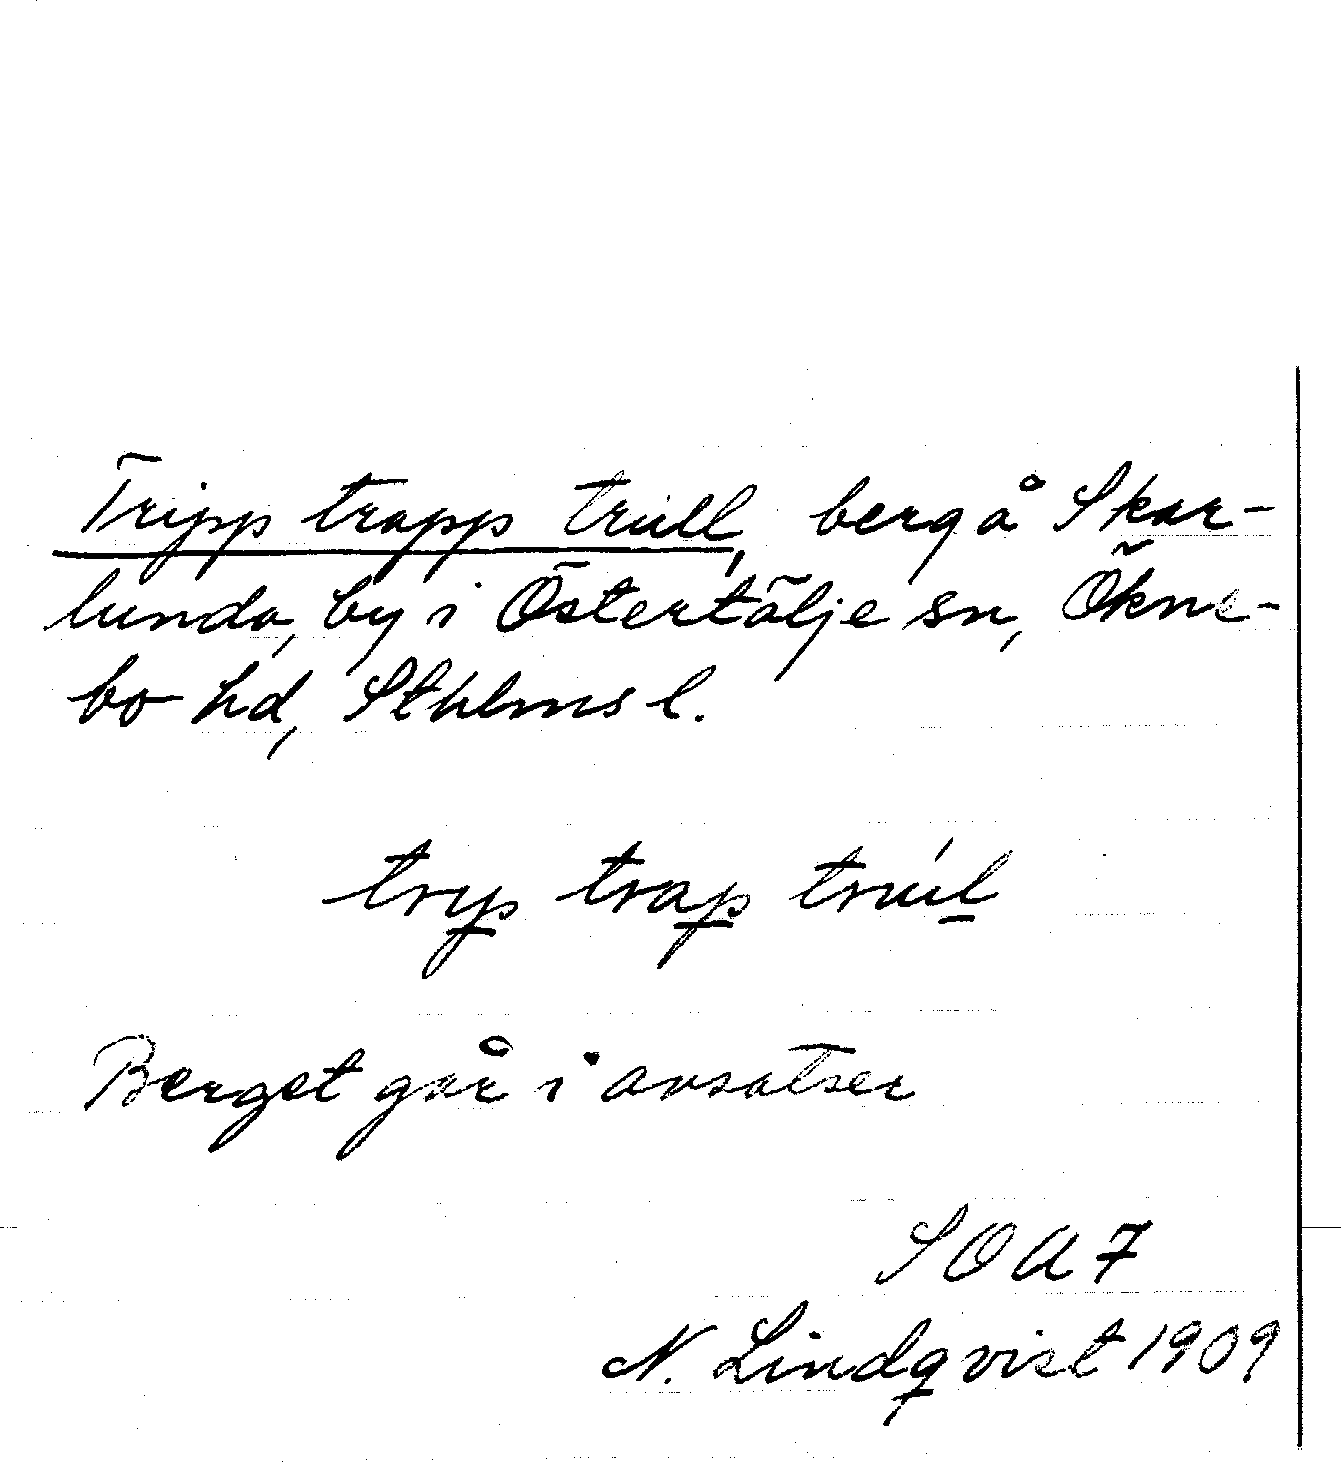 Tripp trapp trull, berg å Skar-
lunda, by i Östertälje sn, Ökne-
bo hd, Sthlms l.
tryp trap trúl
Berget går i avsatser
SOA 7
N. Lindqvist 1909